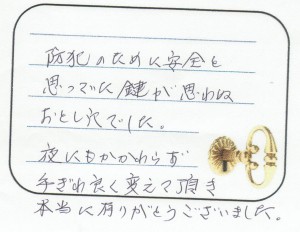 防犯のために安全を
思ってた鍵が思わぬ
おとし穴でした。
夜にもかかわらず
手ぎわ良く変えて頂き
本当に有りがとうございました。